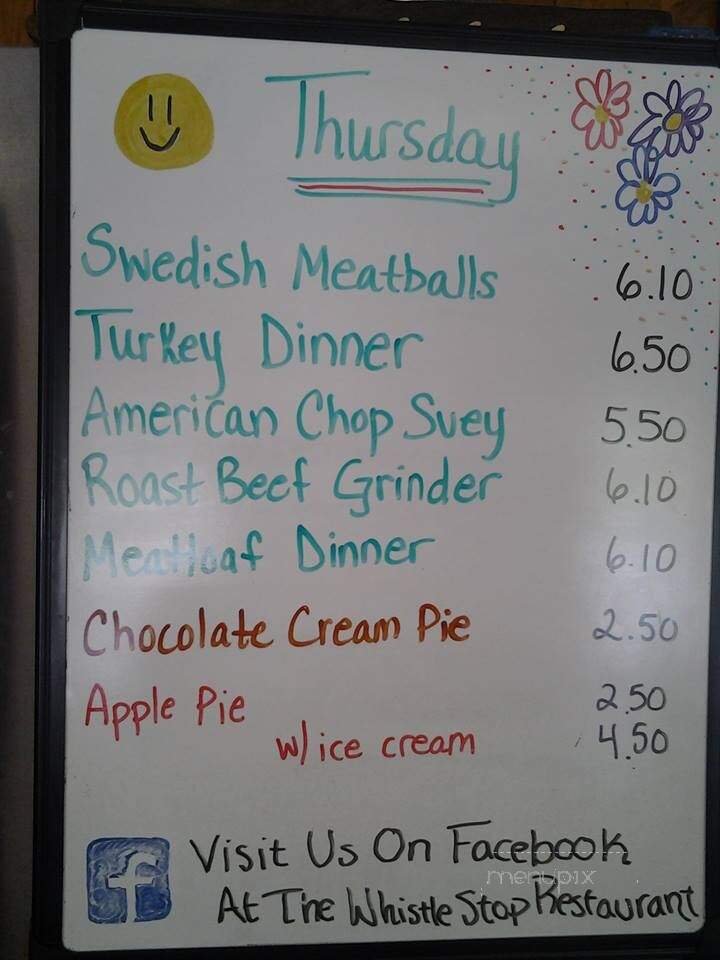 Thursday
Swedish Meatballs 6.10
Turkey Dinner 6.50
American Chop Suey 5.50
Roast Beef Grinder 6.10
Meatloaf Dinner 6.10
Chocolate Cream Pie 2.50
Apple Pie 2.50
w/ ice cream 4.50
f Visit Us On Facebook
menupix
At The Whistle Stop Restaurant